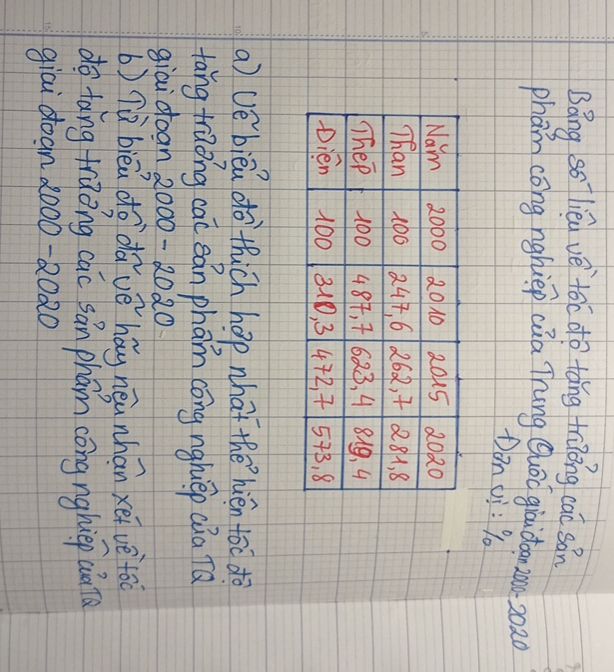 Bảng số liệu về tốc độ tăng trưởng các sản
phẩm công nghiệp của Trung Quốc giai đoạn 2000-2020
Đơn vị: %
Năm 2000 2010 2015 2020
Than 100 247,6 262,7 281,8
Thép 100 487,7 623,4 819,4
Điện 100 310,3 472,7 573,8
a) Vẽ biểu đồ thích hợp nhất thể hiện tốc độ
tăng trưởng các sản phẩm công nghiệp của TQ
giai đoạn 2000-2020
b) Từ biểu đồ đã vẽ hãy nêu nhận xét về tốc
độ tăng trưởng các sản phẩm công nghiệp của TQ
giai đoạn 2000-2020